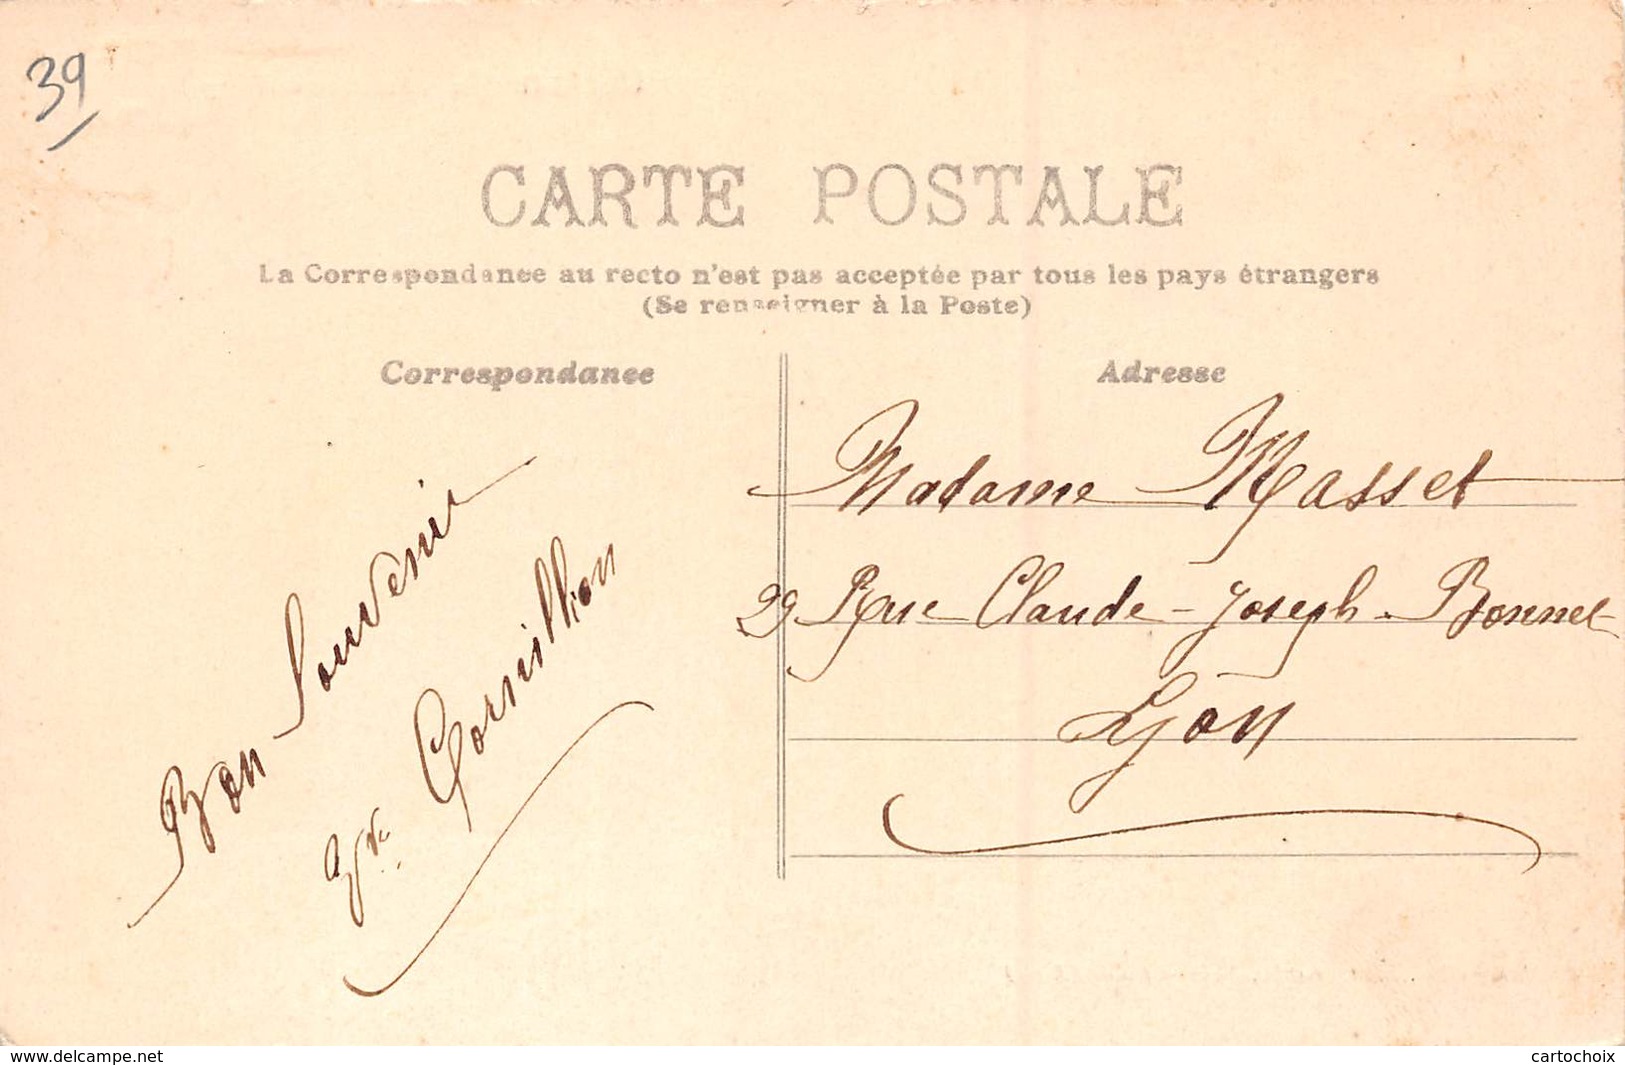 39
CARTE POSTALE
La Correspondance au recto n'est pas acceptée par tous les pays étrangers
(Se renseigner à la Poste)
Correspondance
Adresse
Bon Souvenir
Cornillon
Madame Masset
29 Rue Claude-Joseph-Bonnet
Lyon
www.delcampe.net
cartochoix